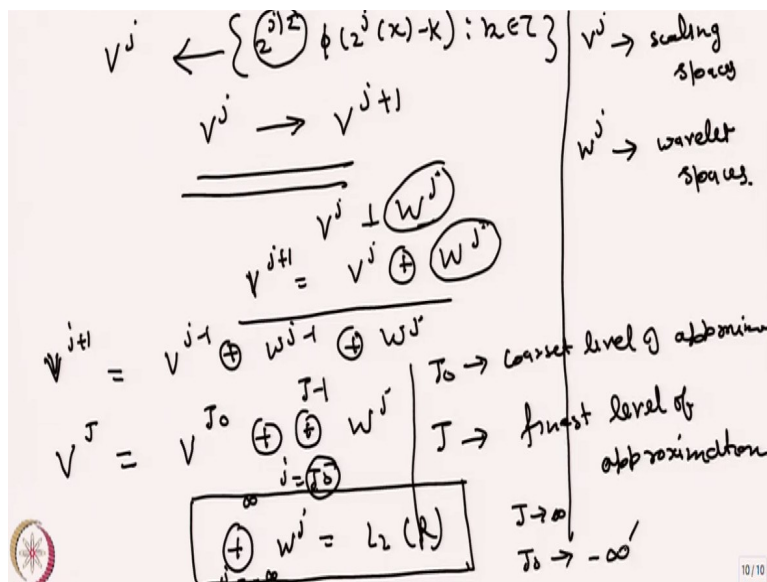 V^j ← { 2^{j/2} ϕ(2^j(x)-k) : k ∈ Z }
V^j → V^{j+1}
V^j ⊥ W^j
V^{j+1} = V^j ⊕ W^j
V^{j+1} = V^{j-1} ⊕ W^{j-1} ⊕ W^j
V^J = V^{J_0} ⊕ ⊕_{j=J_0}^{J-1} W^j
⊕_{j=-∞}^{∞} W^j = L_2(R)
V^j → scaling
spaces
W^j → wavelet
spaces.
J_0 → coarset level of approxim
J → finest level of
approximation
J → ∞
J_0 → -∞
10/10